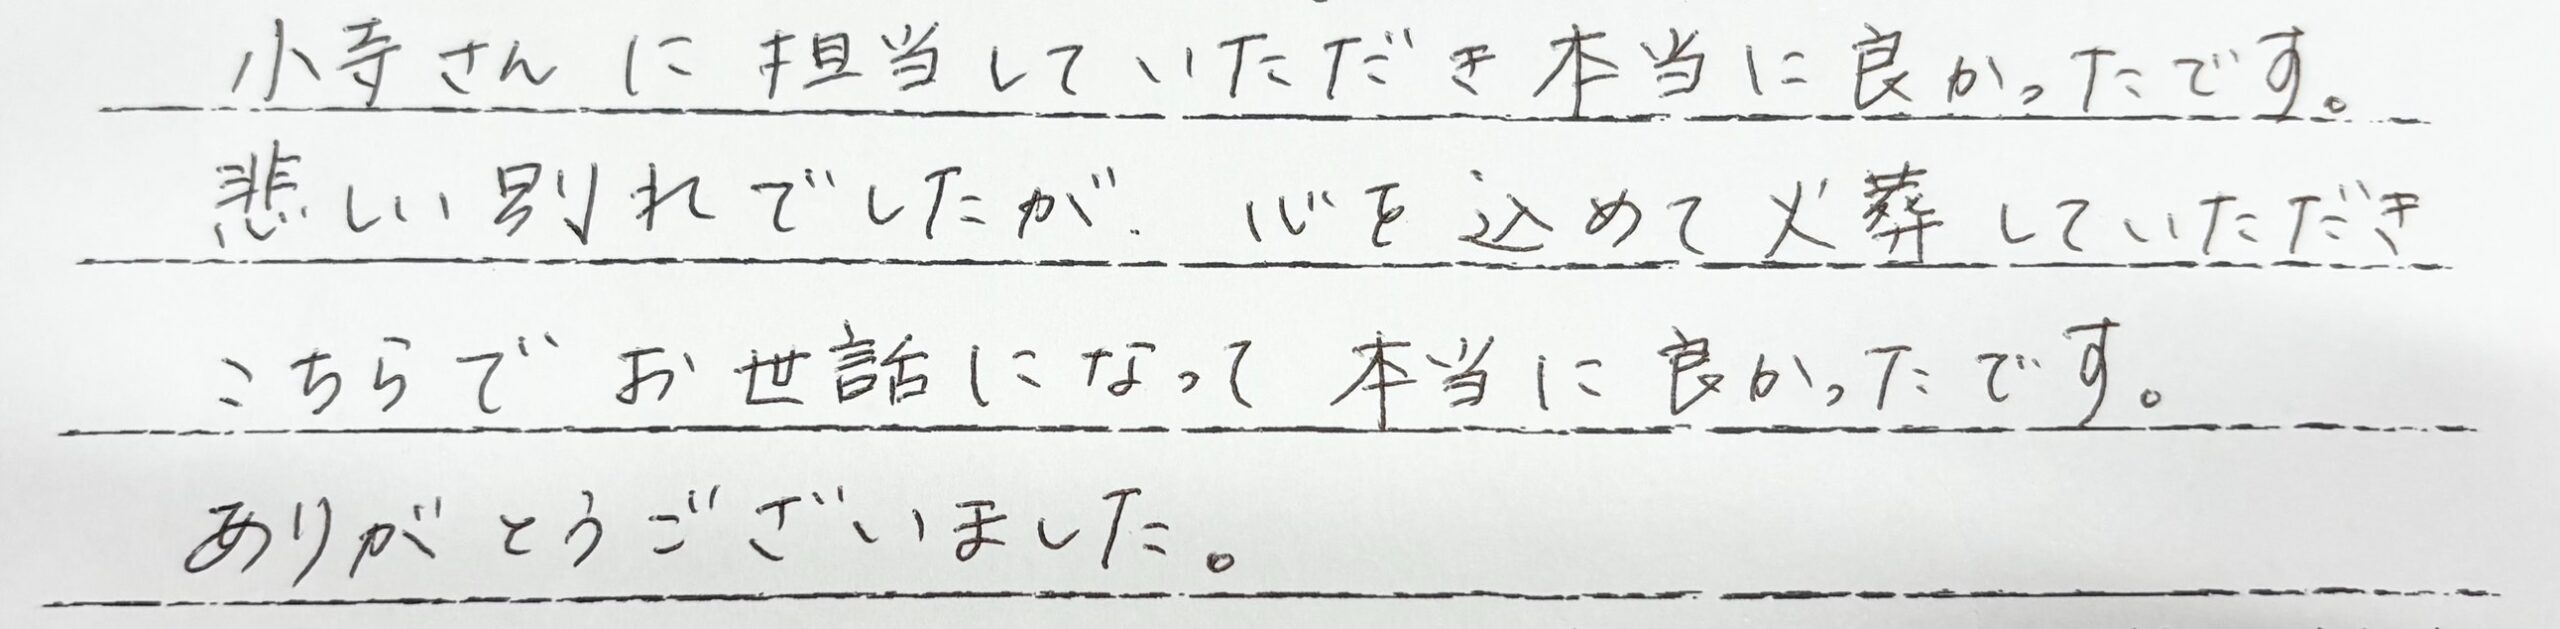 小寺さんに担当していただき本当に良かったです。
悲しい別れでしたが、心を込めて火葬していただき
こちらでお世話になって本当に良かったです。
ありがとうございました。